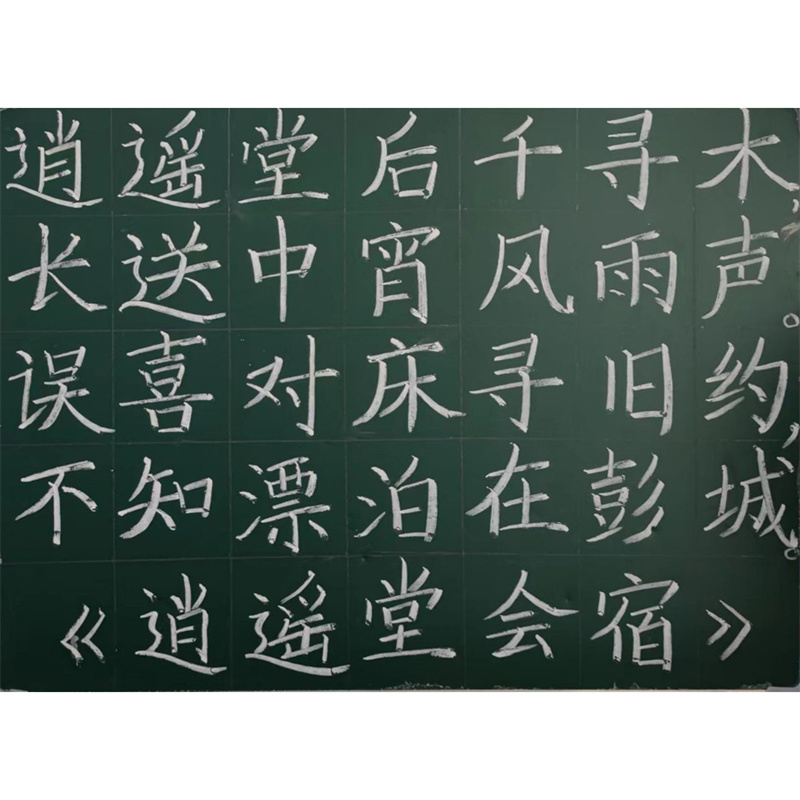 逍遥堂后千寻木，
长送中宵风雨声。
误喜对床寻旧约，
不知漂泊在彭城。
《逍遥堂会宿》